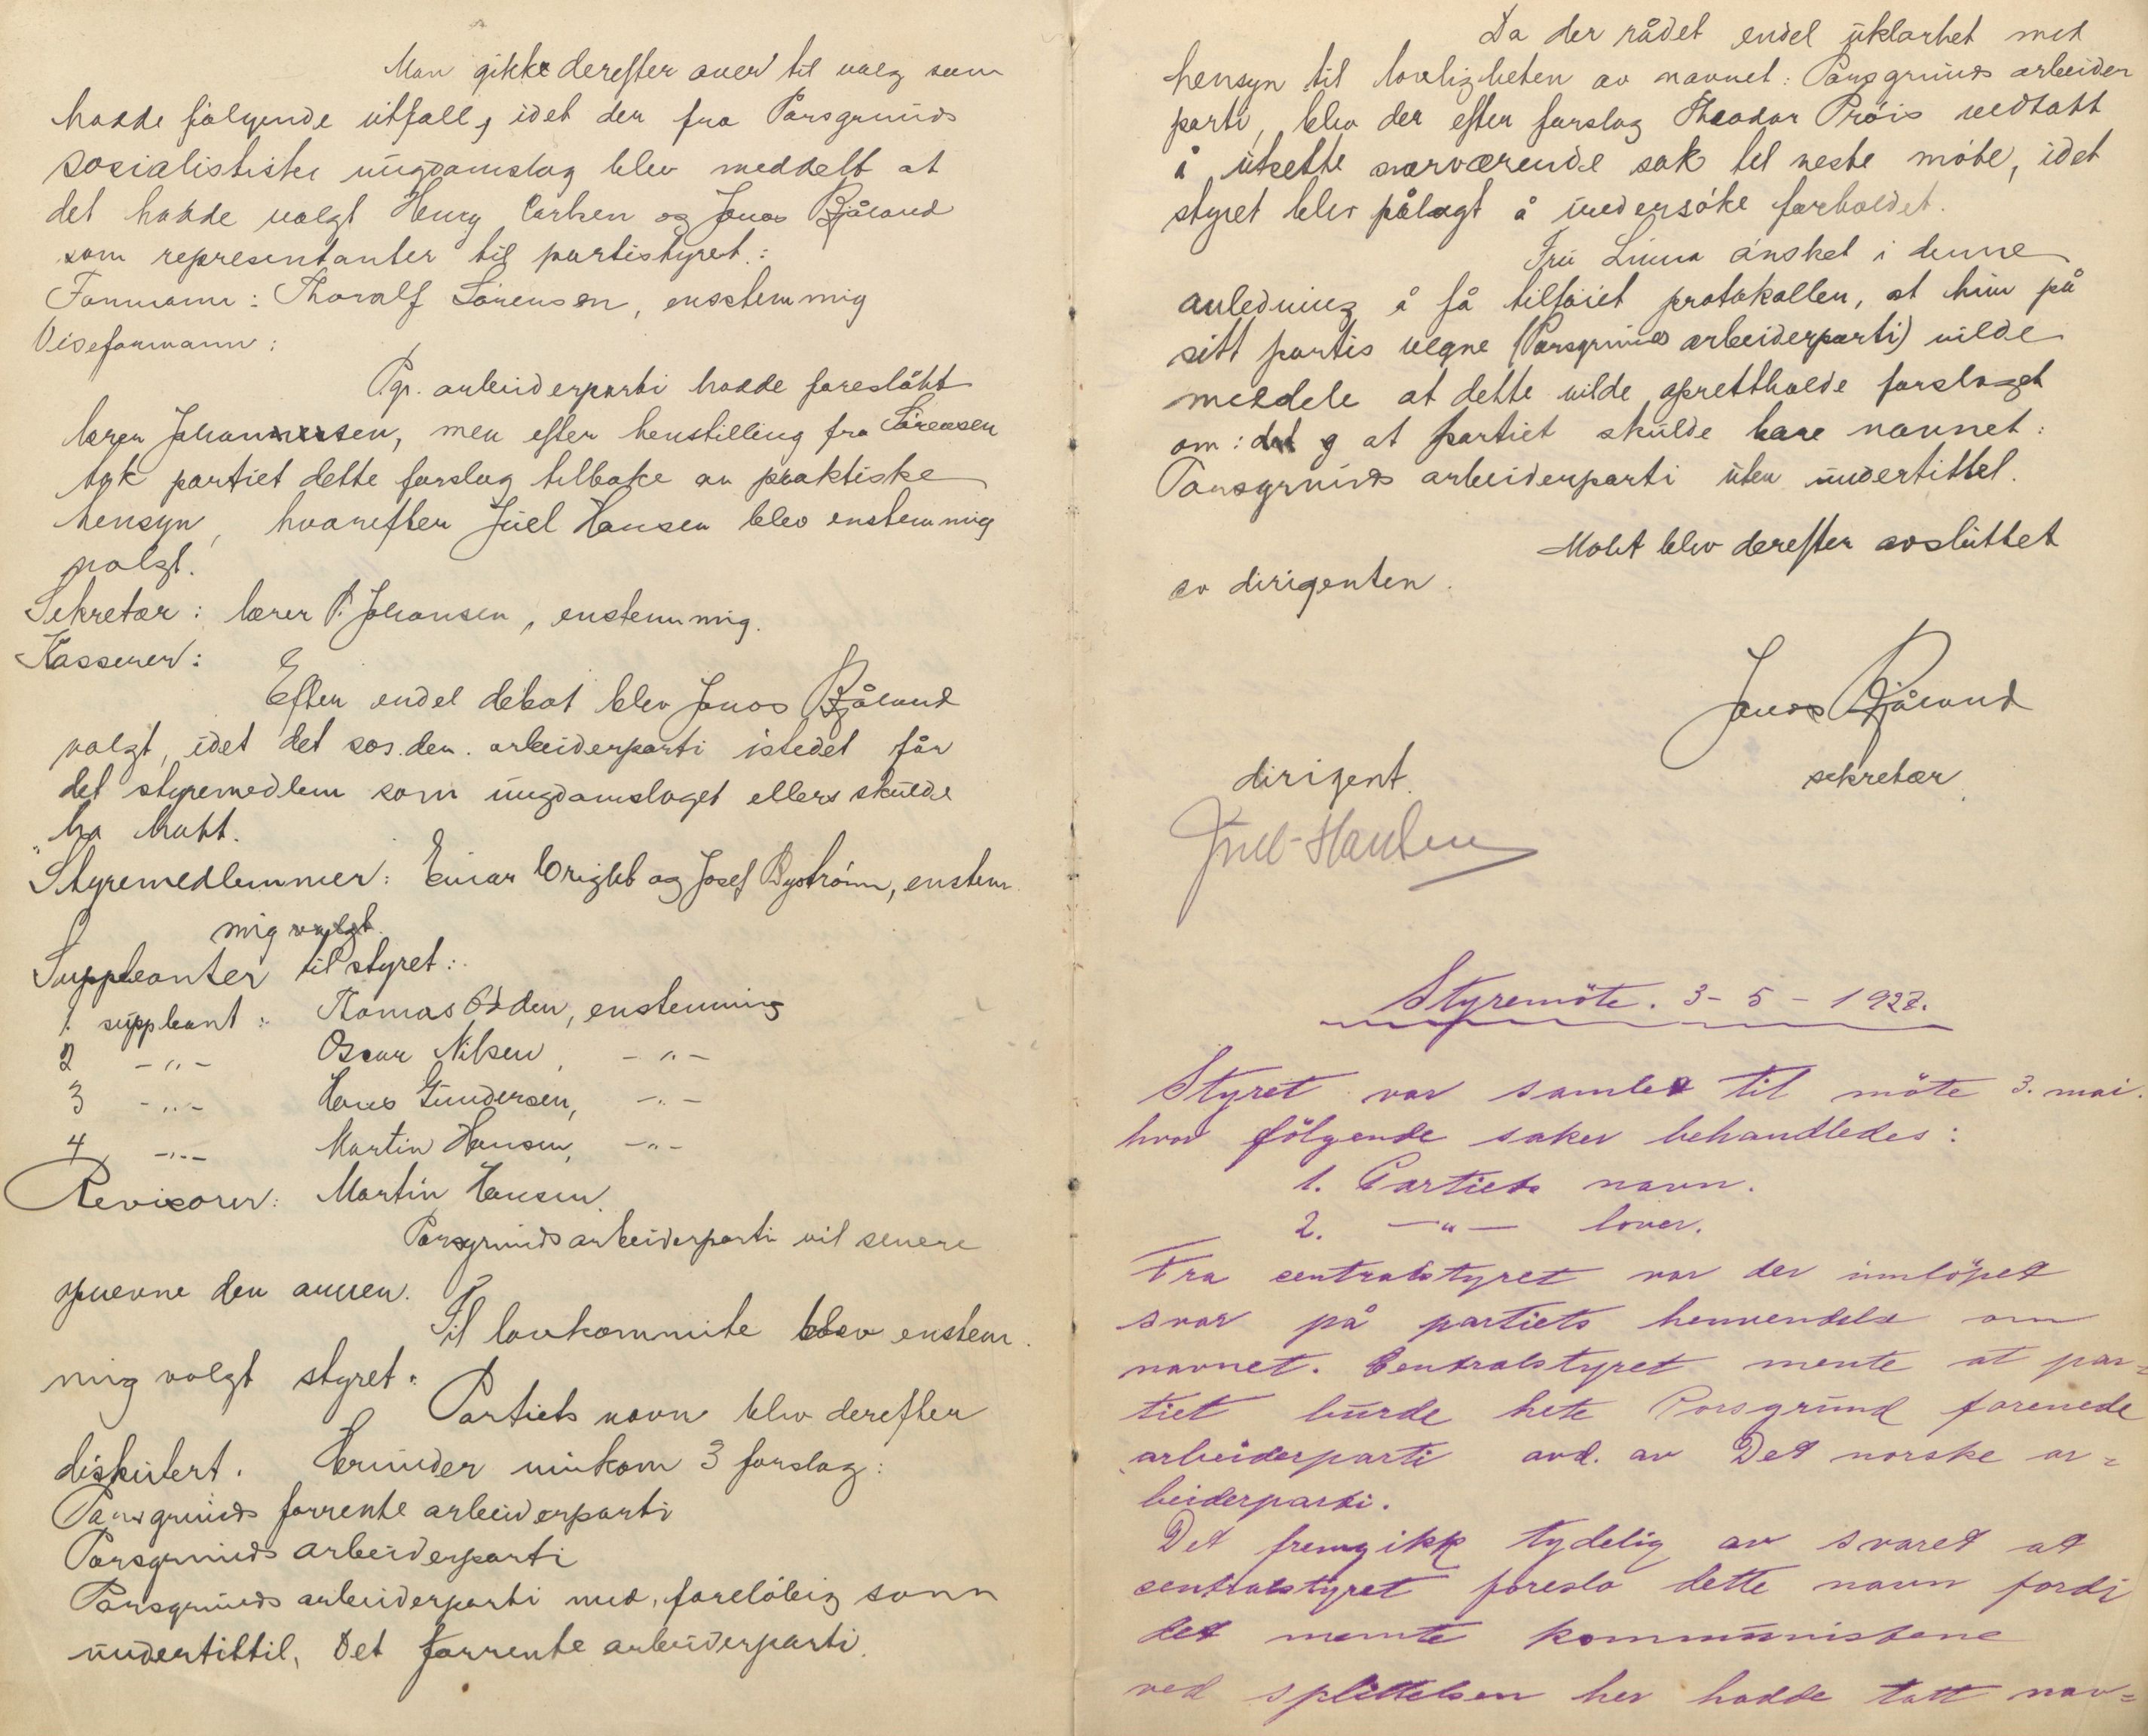 Man gikk derefter over til valg som
hadde følgende utfall, idet der fra Porsgrunds
sosialistiske ungdomslag blev meddelt at
det hadde valgt Henry Carlsen og Jonas Bjåland
som representanter til partistyret:
Formann: Thoralf Sörensen, enstemmig
Viseformann:
Pgr. arbeiderparti hadde foreslått
lærer Johannessen, men efter henstilling fra Sörensen
tok partiet dette forslag tilbake av praktiske
hensyn, hvorefter Juel Hansen blev enstemmig
valgt.
Sekretær: lærer P. Johansen, enstemmig.
Kasserer:
Efter endel debat blev Jonas Bjåland
valgt, idet det sos.dem. arbeiderparti istedet får
det styremedlem som ungdomslaget ellers skulde
ha hatt.
Styremedlemmer: Einar Wright og Josef Byström, enstem
mig valgt.
Suppleanter til styret:
1. suppleant: Thomas Odden, enstemmig
2 -"- Oscar Nilsen, -"-
3 -"- Hans Gundersen, -"-
4 -"- Martin Hansen, -"-
Revisorer: Martin Hansen.
Porsgrunds arbeiderparti vil senere
opnevne den annen.
Til lovkommite blev enstem
mig valgt styret.
Partiets navn blev derefter
diskutert. Herunder innkom 3 forslag:
Porsgrunds forrente arbeiderparti
Porsgrunds arbeiderparti
Porsgrunds arbeiderparti med, foreløbig som
undertittil, Det forrente arbeiderparti.
Da der rådet endel uklarhet med
hensyn til lovligheten av navnet: Porsgrunds arbeider
parti, blev der efter forslag Theodor Próis vedtatt
å utsette nærværende sak til neste möte, idet
styret blev pålagt å undersöke forholdet.
Fru Linna önsket i denne
anledning å få tilföiet protokollen, at hun på
sitt partis vegne (Porsgrunds arbeiderparti) vilde
meddele at dette vilde oprettholde forslaget
om: at partiet skulde bare navnet:
Porsgrunds arbeiderparti uten undertittel.
Motet blev derefter avsluttet
av dirigenten.
Jonas Bjåland
dirigent. sekretær
Juel-Hansen
Styremöte. 3-5-1927.
Styret var samlet til möte 3. mai.
hvor fölgende saker behandledes:
1. Partiets navn.
2. -"- lover.
Fra centralstyret var der innlöpet
svar på partiets henvendelse om
navnet. Centralstyret mente at par=
tiet burde hete Porsgrund forenede
arbeiderparti avd. av Det norske ar=
beiderparti.
Det fremgikk tydelig av svaret at
centralstyret foreslo dette navn fordi
det mente kommunistene
ved splittelsen her hadde tatt nav=